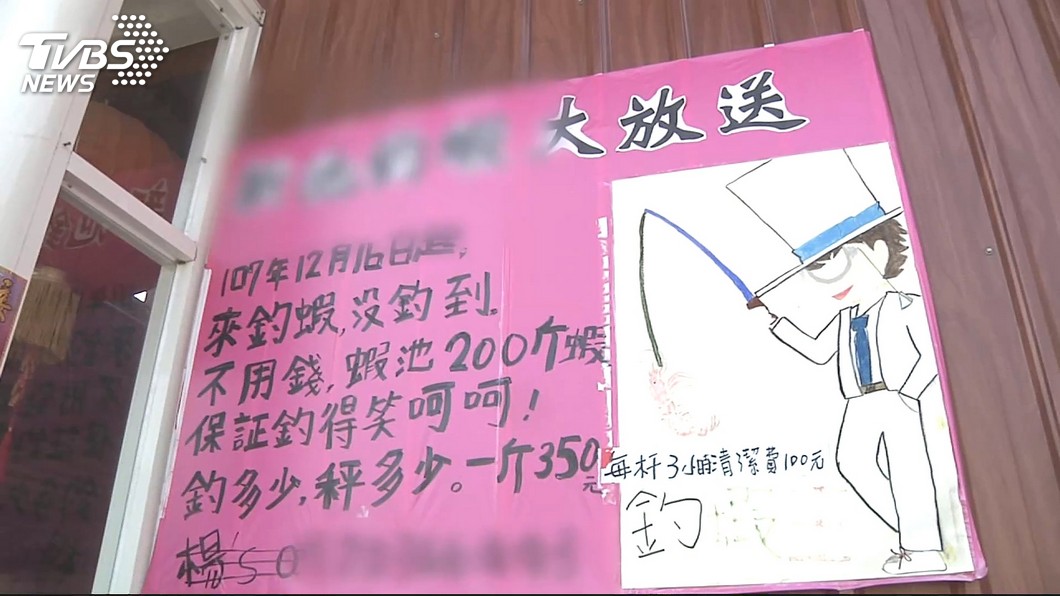 TVBS
NEWS
大放送
107年12月16日起,
來釣蝦,沒釣到
不用錢,蝦池200斤蝦
保証釣得笑呵呵!
釣多少,秤多少。一斤350元
楊'S 0
每杆3小時清潔費100元
釣